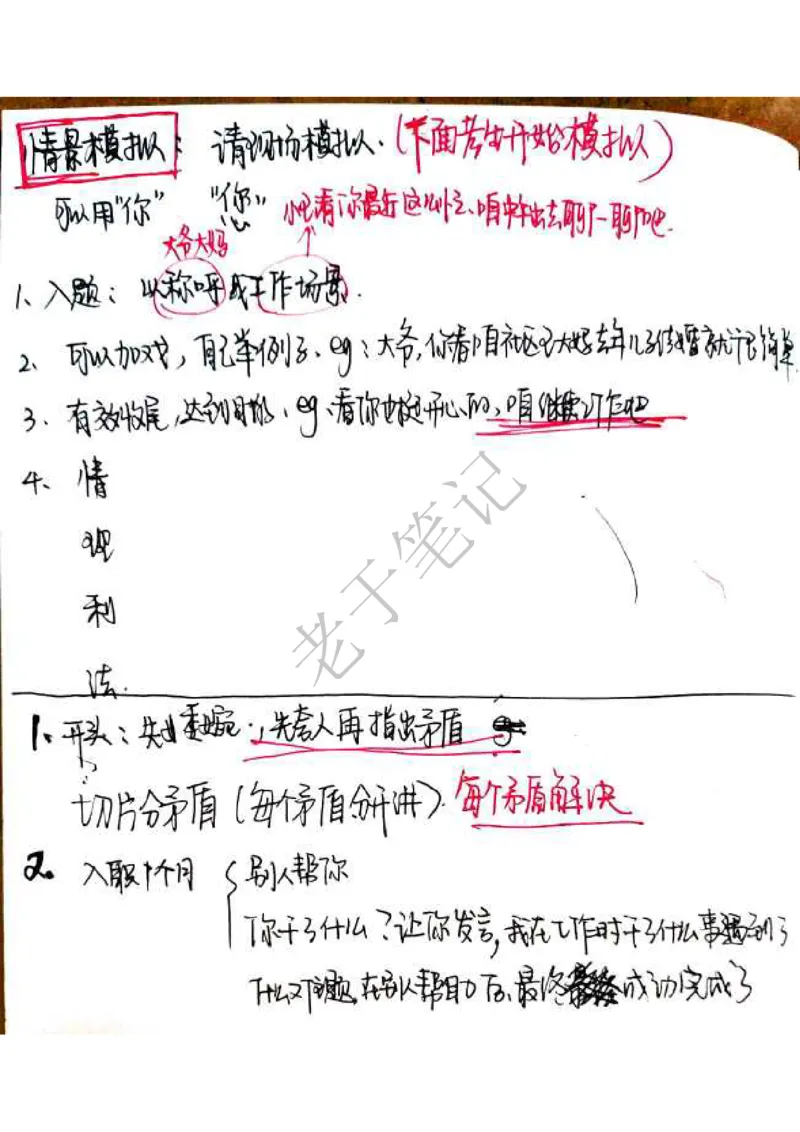 情景模拟：请现场模拟.（下面考生开始模拟）
可以用“你” “您” 小王看你最近这么忙、咱中午出去聊一聊吧.
大爷大妈
1、入题：以称呼或工作场景.
2、可以加戏，自己举例子、eg：大爷，你看咱社区王大妈去年儿子结婚就很简单
3、有效收尾，达到目标、eg、看你也挺开心的，咱继续工作吧
4、情
理
利
法.
老于笔记
1、开头：先委婉.，先夸人再指出矛盾
切片分矛盾（每个矛盾分开讲）. 每个矛盾解决
2. 入职1个月 别人帮你
你干了什么？让你发言，我在工作时干了什么事遇到了
什么难题，在别人帮助下、最终成功完成了